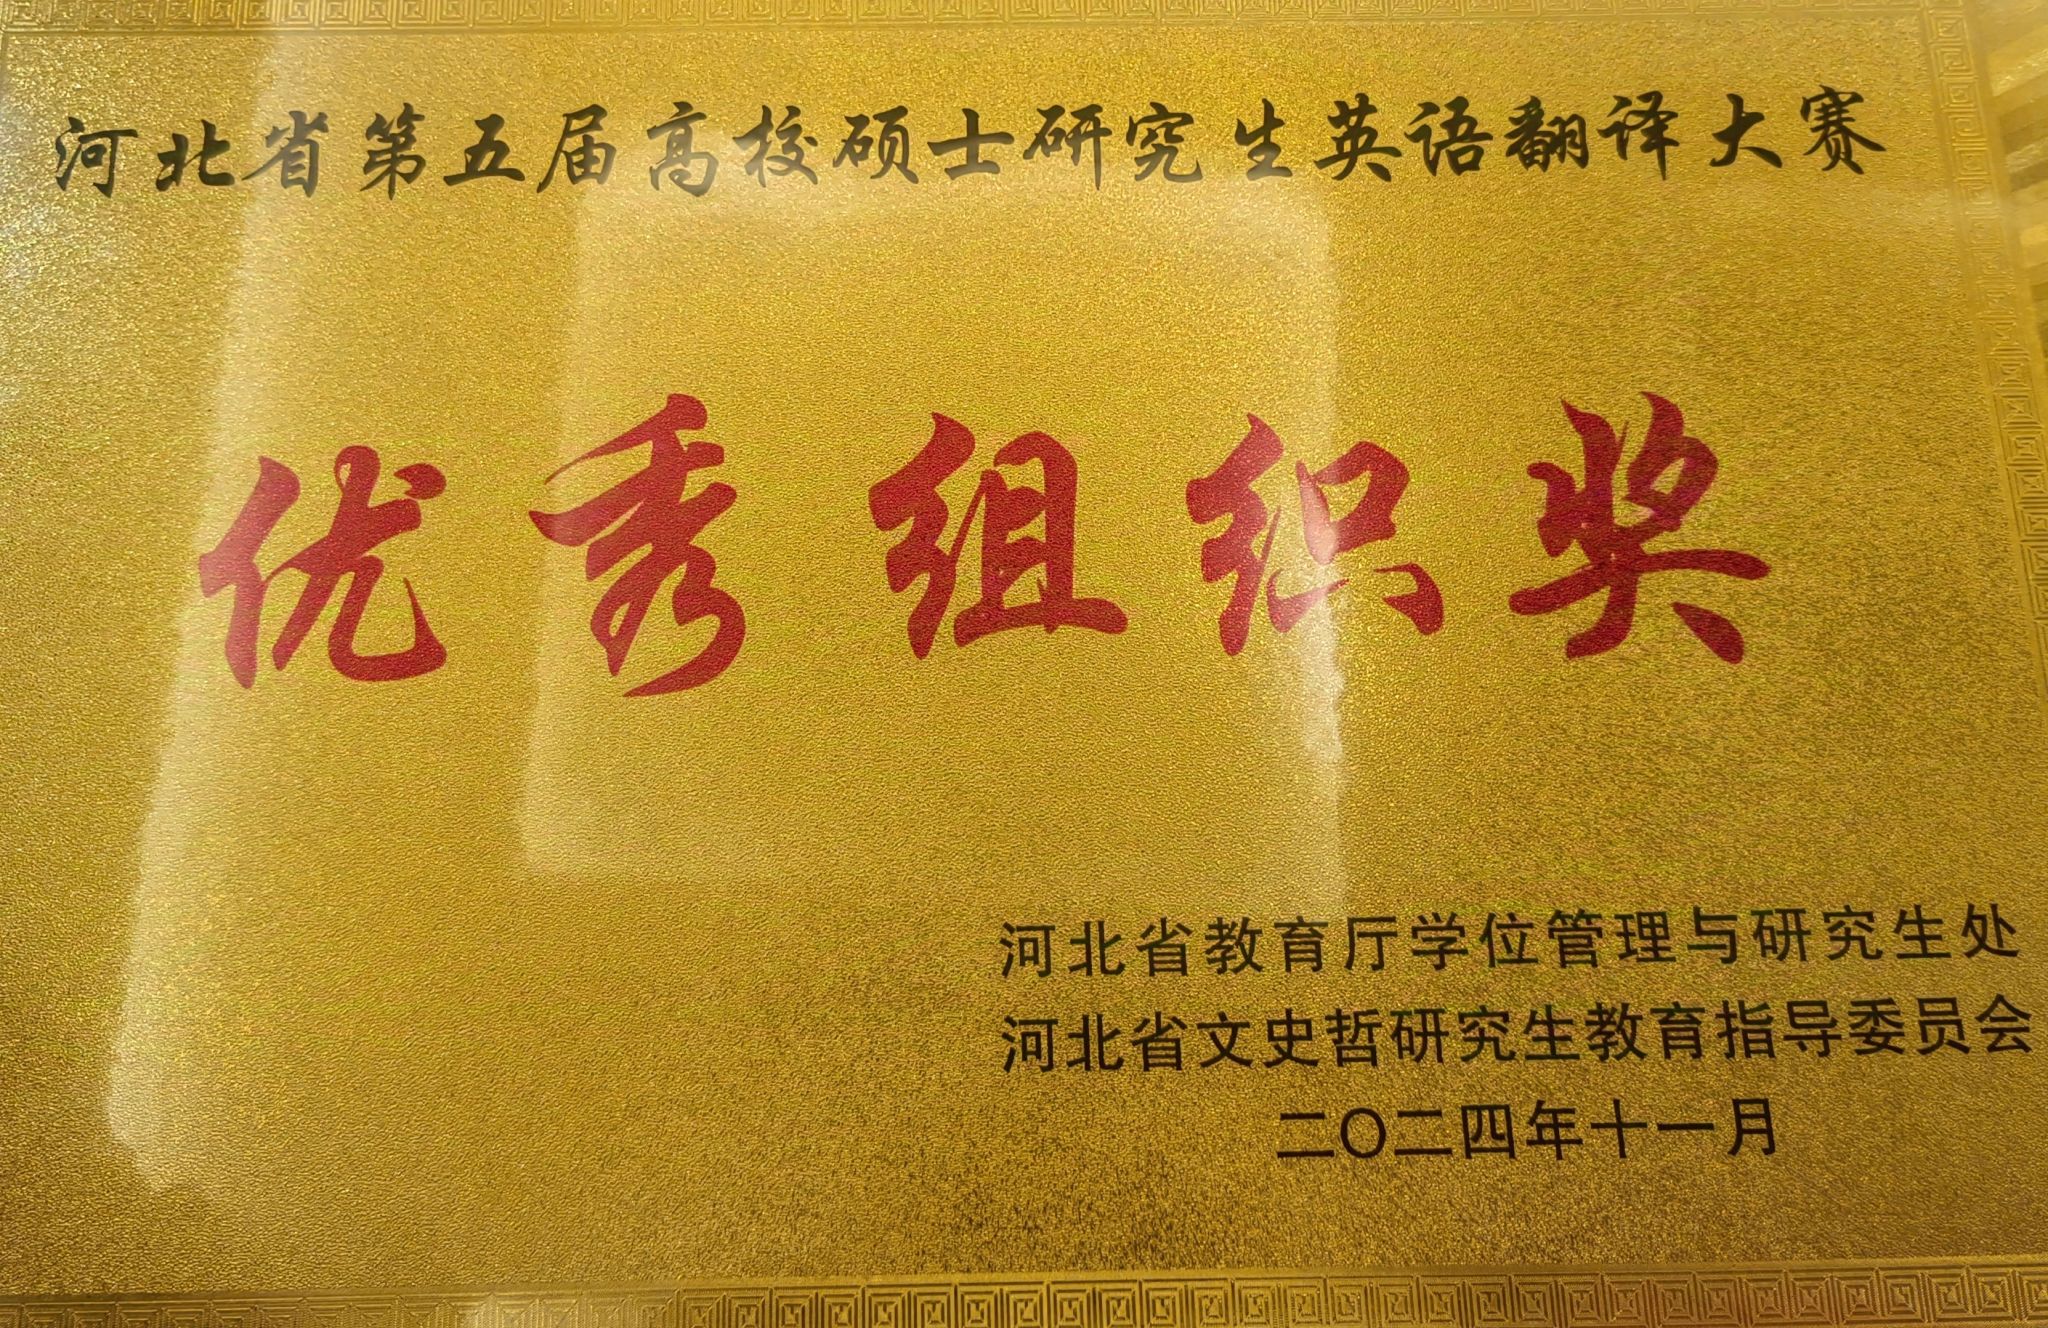 河北省第五届高校硕士研究生英语翻译大赛
优秀组织奖
河北省教育厅学位管理与研究生处
河北省文史哲研究生教育指导委员会
二〇二四年十一月